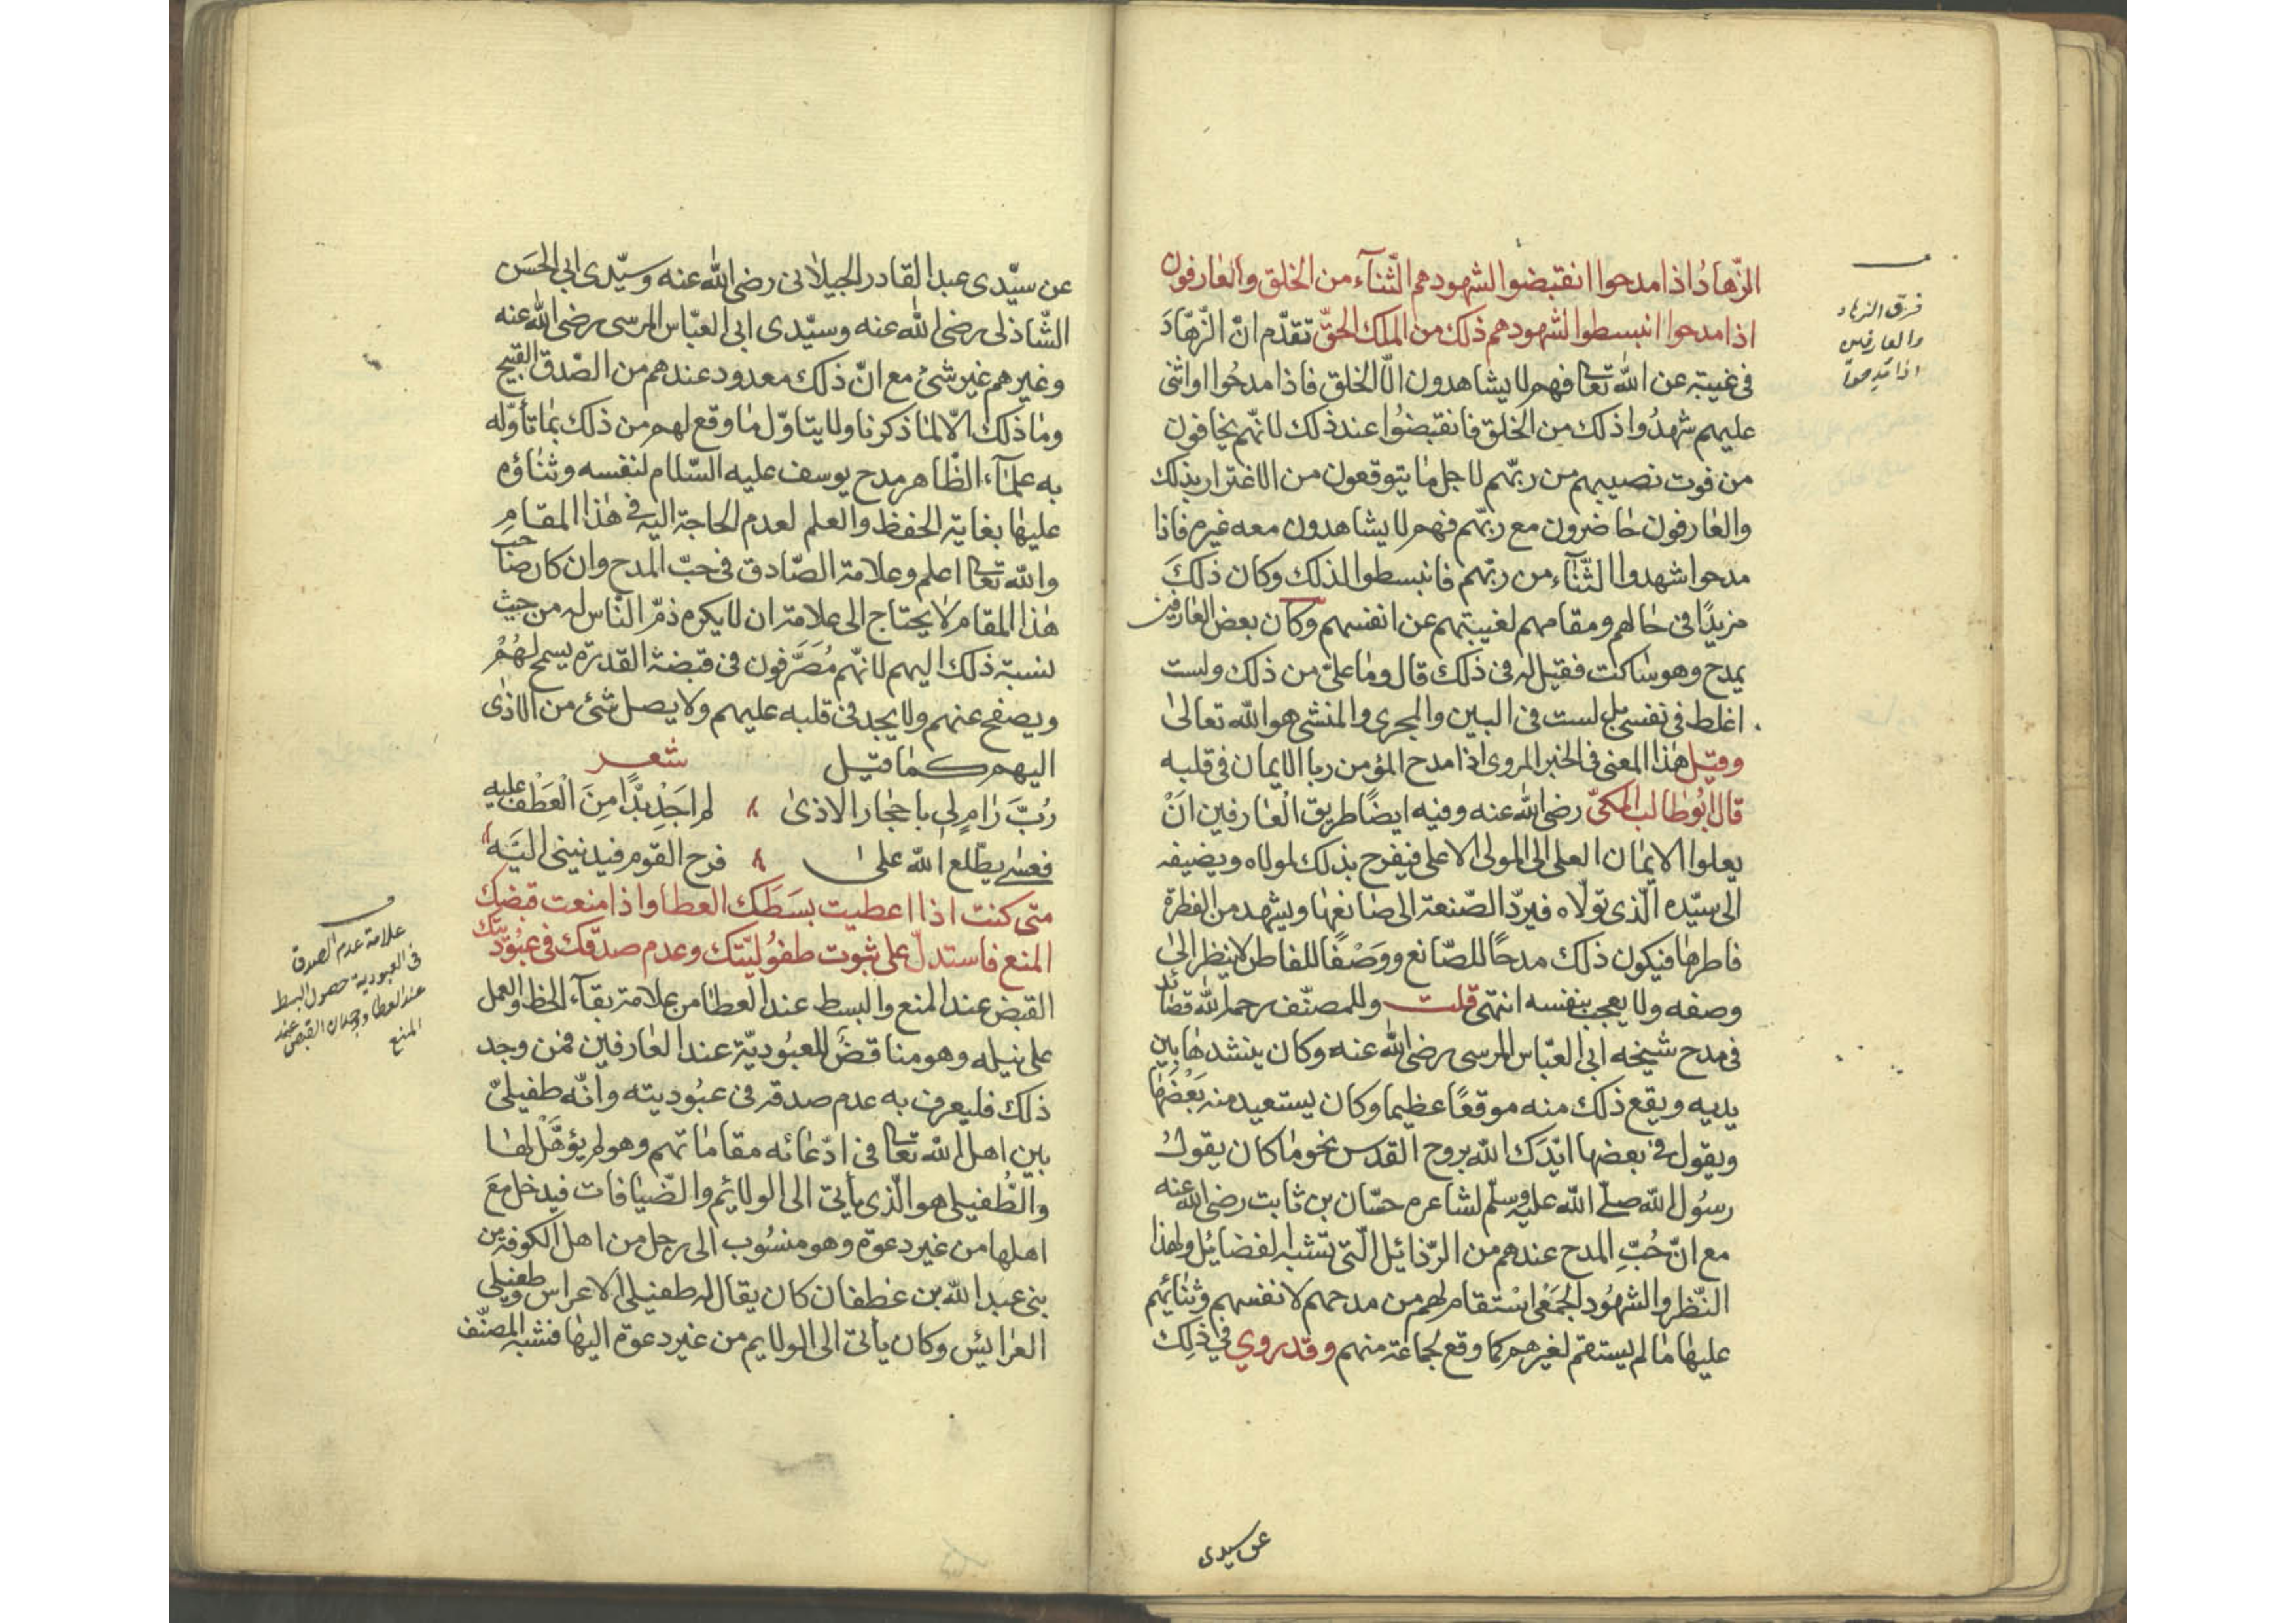 الزّهادُ اذا مدحوا انقبضوا لشهودهم الثّنآء من الخلق والعارفون
اذا مدحوا انبسطوا لشهودهم ذلك من الملك الحقّ تقدّم انّ الزّهّادَ
فى غيبة عن الله تعالى فهم لا يشاهدون الّا الخلق فاذا مدحُوا او اثنى
عليهم شهدُوا ذلك من الخلق فانقبضُوا عند ذلك لانّهم يخافون
من فوت نصيبهم من ربّهم لاجل ما يتوقعون من الاغترار بذلك
والعارفون حاضرون مع ربّهم فهم لا يشاهدون معه غيره فاذا
مدحوا شهدوا الثّنآء من ربّهم فانبسطوا لذلك وكان ذلكَ
مزيدًا فى حالهم ومقامهم لغيبتهم عن انفسهم وكان بعض العارفين
يمدح وهو ساكت فقيل له فى ذلك قال وما علىّ من ذلك ولست
اغلط فى نفسى بل لست فى البين والمجرى والمنشى هو الله تعالىٰ
وقيل هذا المعنى فى الخبر المروى اذا مدح المؤمن ربا الايمان فى قلبه
قال ابُو طالب المكىّ رضى الله عنه وفيه ايضًا طريق العارفين انْ
يعلوا الايمان العلى الى المولى الاعلى فيفرح بذلك لمولاه ويضيفه
الى سيّده الّذى تولّاه فيردّ الصّنعة الى صانعها ويشهد من الفطرة
فاطرها فيكون ذلك مدحًا للصّانع ووَصْفًا للفاطر لا ينظر الىٰ
وصفه ولا يعجب بنفسه انتهى قلت وللمصنّف رحمه الله قصائد
فى مدح شيخه ابى العبّاس المرسى رضى الله عنه وكان ينشدها بين
يديه ويقع ذلك منه موقعًا عظيما وكان يستعيد منه بَعْضَها
ويقول فى بعضها ايّدَك الله بروح القدس نحو ما كان يقولُ
رسُول الله صلّى الله عليه وسلّم لشاعره حسّان بن ثابت رضى الله عنه
مع انّ حُبّ المدح عندهم من الرّذائل الّتى تشبه الفضائل ولهذا
النّظر والشهُود الجَمْعى استقام لهم من مدحهم لانفسهم وثنائهم
عليها ما لم يستقم لغيرهم كما وقع لجماعة منهم وقد روي في ذلِك
عن سيدى
فرق الزهاد
والعارفين
اذا مدحوا
عن سيّدى عبد القادر الجيلانى رضى الله عنه وسيّدى ابى الحَسَن
الشّاذلى رضى الله عنه وسيّدى ابى العبّاس المرسى رضى الله عنه
وغيرهم غير شئ مع انّ ذلك معدود عندهم من الصّدق القبيح
وما ذلك الّا لما ذكرنا ولا يتاوّل ما وقع لهم من ذلك بما تأوّله
به علمآء الظّاهر مدح يوسف عليه السّلام لنفسه وثناؤه
عليها بغاية الحفظ والعلم لعدم الحاجة اليه فى هذا المقامِ
والله تعالى اعلم وعلامة الصّادق فى حبّ المدح وان كان صاحب
هذا المقام لا يحتاج الى علامة ان لا يكره ذمّ النّاس له من حيث
نسبة ذلك اليهم لانّهم مُصَرَّفون فى قبضة القدرة يسمح لهُمْ
ويصفح عنهم ولا يجد فى قلبه عليهم ولا يصل شئ من الاذى
اليهم كما قيل شعر
رُبَّ رَامٍ لى باحجار الاذىٰ لم اجَدْ بدًّا مِنَ الْعَطْف عليه
فعسٰى يطّلع الله على فرح القوم فيدنينى اليَه
متى كنت اذا اعطيت بسَطَك العطا واذا منعت قبضك
المنع فاستدلّ على ثبوت طفوُليّتك وعدم صدقك فى عبُوديّتك
القبض عند المنع والبسط عند العطا من علامة بقآء الحظ والعمل
على نيله وهو مناقضٌ للعبُوديّة عند العارفين فمن وجد
ذلك فليعرف به عدم صدقه فى عبُوديته وانّه طفيلىّ
بين اهل الله تعالى فى ادّعائه مقاماتهم وهو لم يؤهّل لها
والطُّفيلى هو الّذى يأتى الى الولائم والضّيافات فيدخل معَ
اهلها من غير دعوة وهو منسُوب الى رجل من اهل الكوفة من
بنى عبد الله بن غطفان كان يقال له طفيل الاعراس وطفيلى
العرائس وكان يأتى الى الولايم من غير دعوة اليها فشبه المصنّف
علامة عدم الصدق
فى العبودية حصول البسط
عند العطا ووجدان القبض عند
المنع